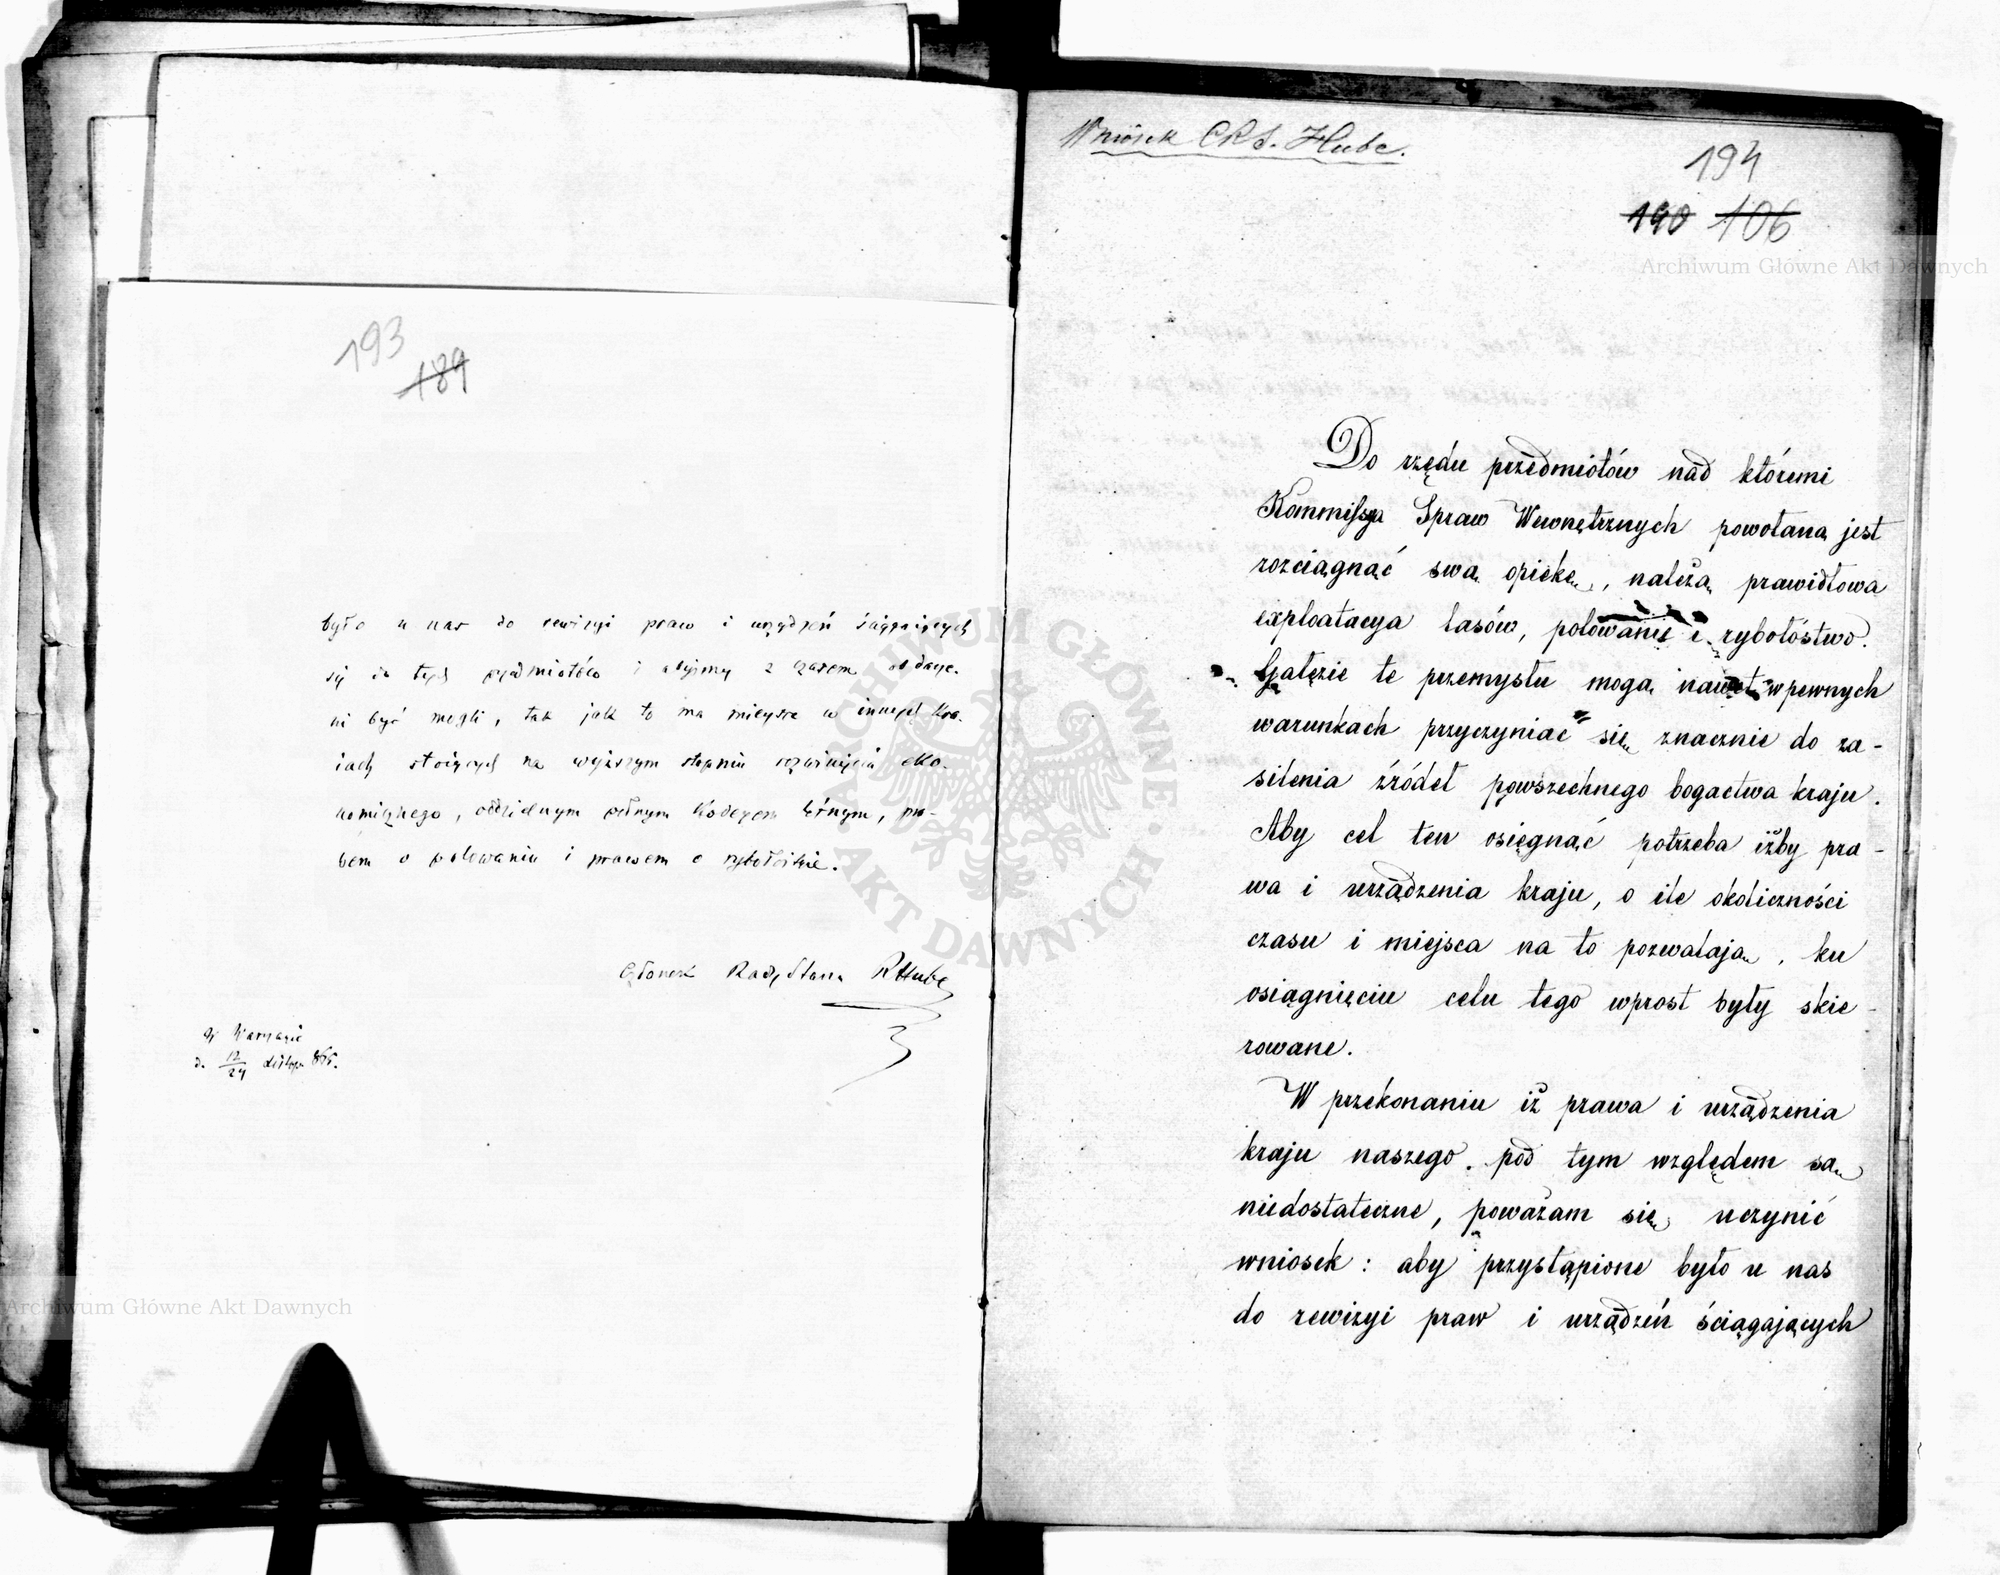 193
189
było u nas do rewizyi praw i urządzeń ściągających
się do tych przedmiotów i abyśmy z czasem obdarze-
ni być mogli, tak jak to ma miejsce w innych kra-
jach stojących na wyższym stopniu rozwinięcia eko-
nomicznego, oddzielnym pełnym Kodexem leśnym, pra-
wem o polowaniu i prawem o rybołóstwie.
Członek Rady Stanu RHube
W Warszawie
d. 12/24 865.
Archiwum Główne Akt Dawnych
Wniosek CRS. Hube.
194
190 106
Archiwum Główne Akt Dawnych
Do rzędu przedmiotów nad któremi
Kommissya Spraw Wewnętrznych powołaną jest
rozciągnąć swą opiekę, należą prawidłowa
exploatacya lasów, polowanie i rybołóstwo.
Gałęzie te przemysłu mogą nawet w pewnych
warunkach przyczyniać się znacznie do za-
silenia źródeł powszechnego bogactwa kraju.
Aby cel ten osięgnąć potrzeba iżby pra-
wa i urządzenia kraju, o ile okoliczności
czasu i miejsca na to pozwalają, ku
osiągnięciu celu tego wprost były skie-
rowane.
W przekonaniu iż prawa i urządzenia
kraju naszego pod tym względem są
niedostateczne, poważam się uczynić
wniosek: aby przystąpione było u nas
do rewizyi praw i urządzeń ściągających
ARCHIWUM GŁÓWNE AKT DAWNYCH